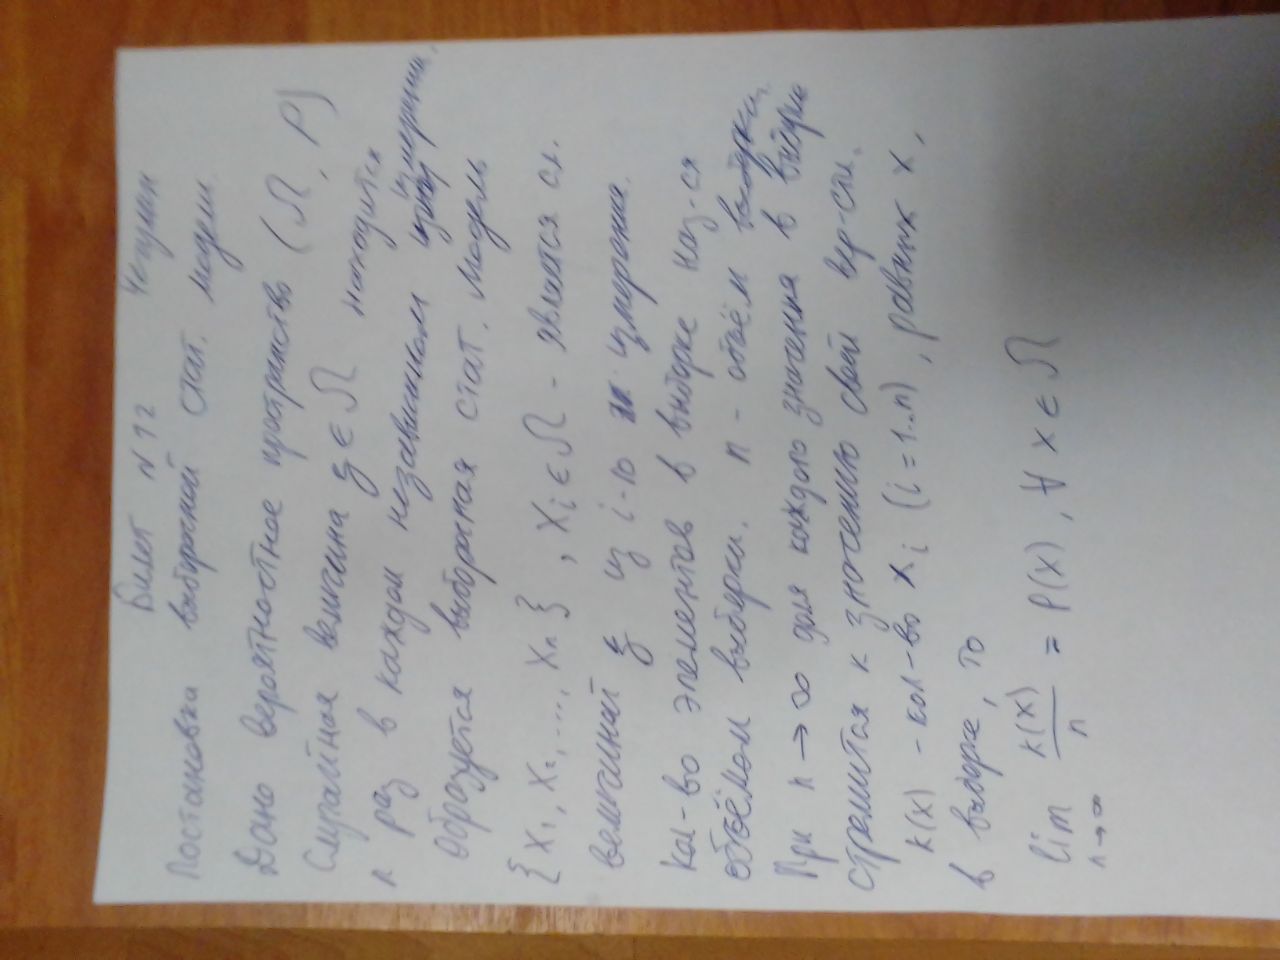 Билет N 12 Чепурин
Постановка выборочной стат. модели.
Дано вероятностное пространство (Ω, P)
Случайная величина ξ ∈ Ω находится
n раз в каждом независимом измерении.
Образуется выборочная стат. модель
{X₁, X₂, ..., Xₙ}, Xᵢ ∈ Ω - является сл.
величиной ξ из i-го измерения.
Кол-во элементов в выборке наз-ся
объёмом выборки. n - объём выборки.
При n → ∞ доля каждого значения в выборке
стремится к значению своей вер-сти.
k(x) - кол-во xᵢ (i = 1..n), равных x,
в выборке, то
lim k(x)/n = P(x), ∀ x ∈ Ω
n→∞